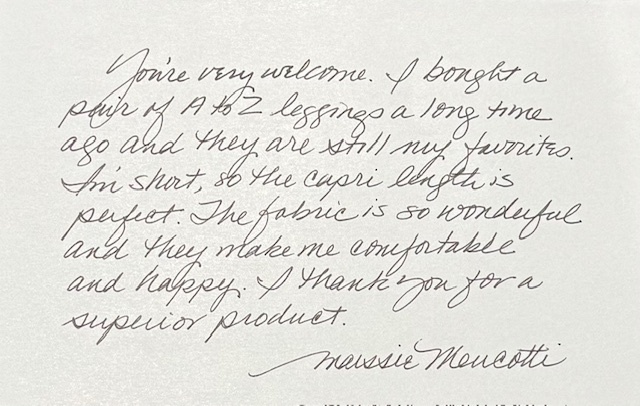 You're very welcome. I bought a
pair of A to Z leggings a long time
ago and they are still my favorites.
I'm short, so the capri length is
perfect. The fabric is so wonderful
and they make me comfortable
and happy. I thank you for a
superior product.
Maissie Mencotti